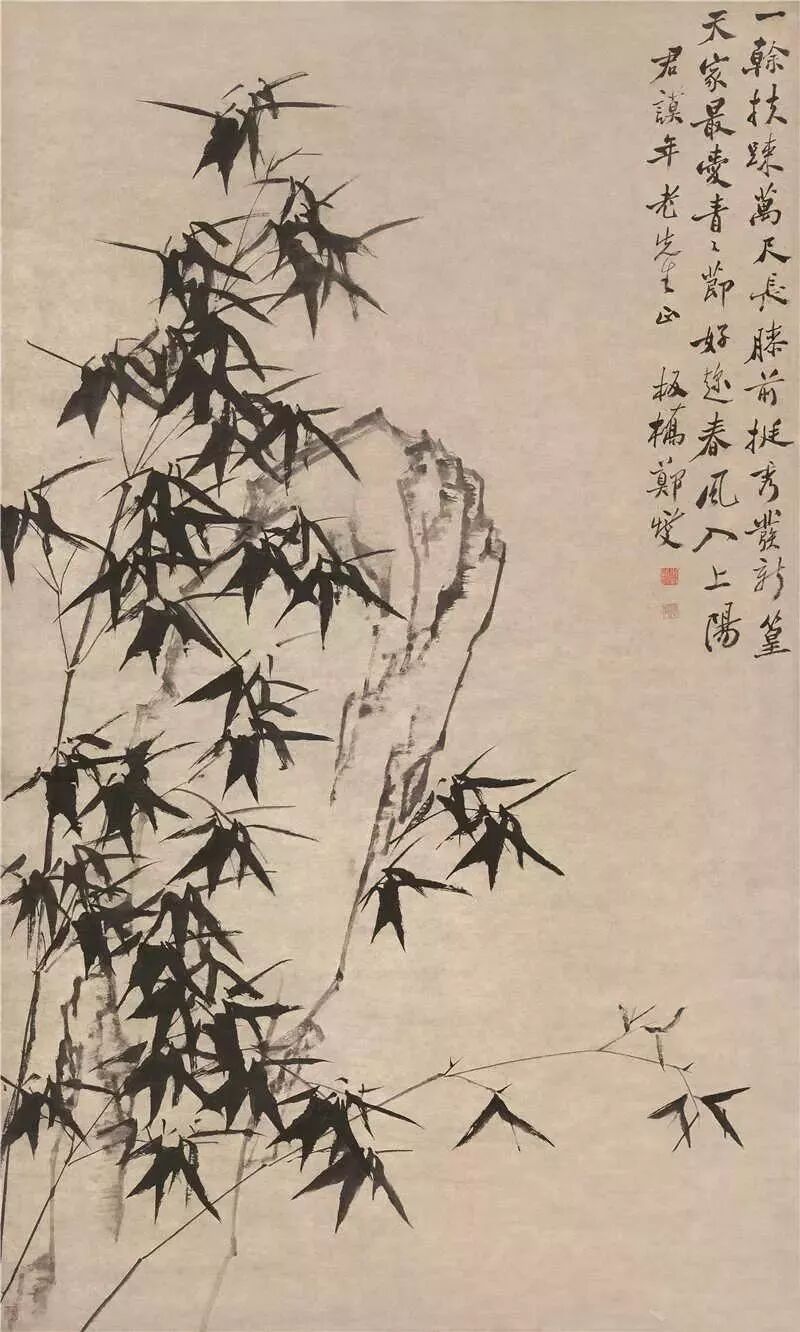 一榦扶疎萬尺長膝前挺秀發新篁
天家最愛青〻節好趁春風入上陽
君謨年老先生正 板橋鄭燮